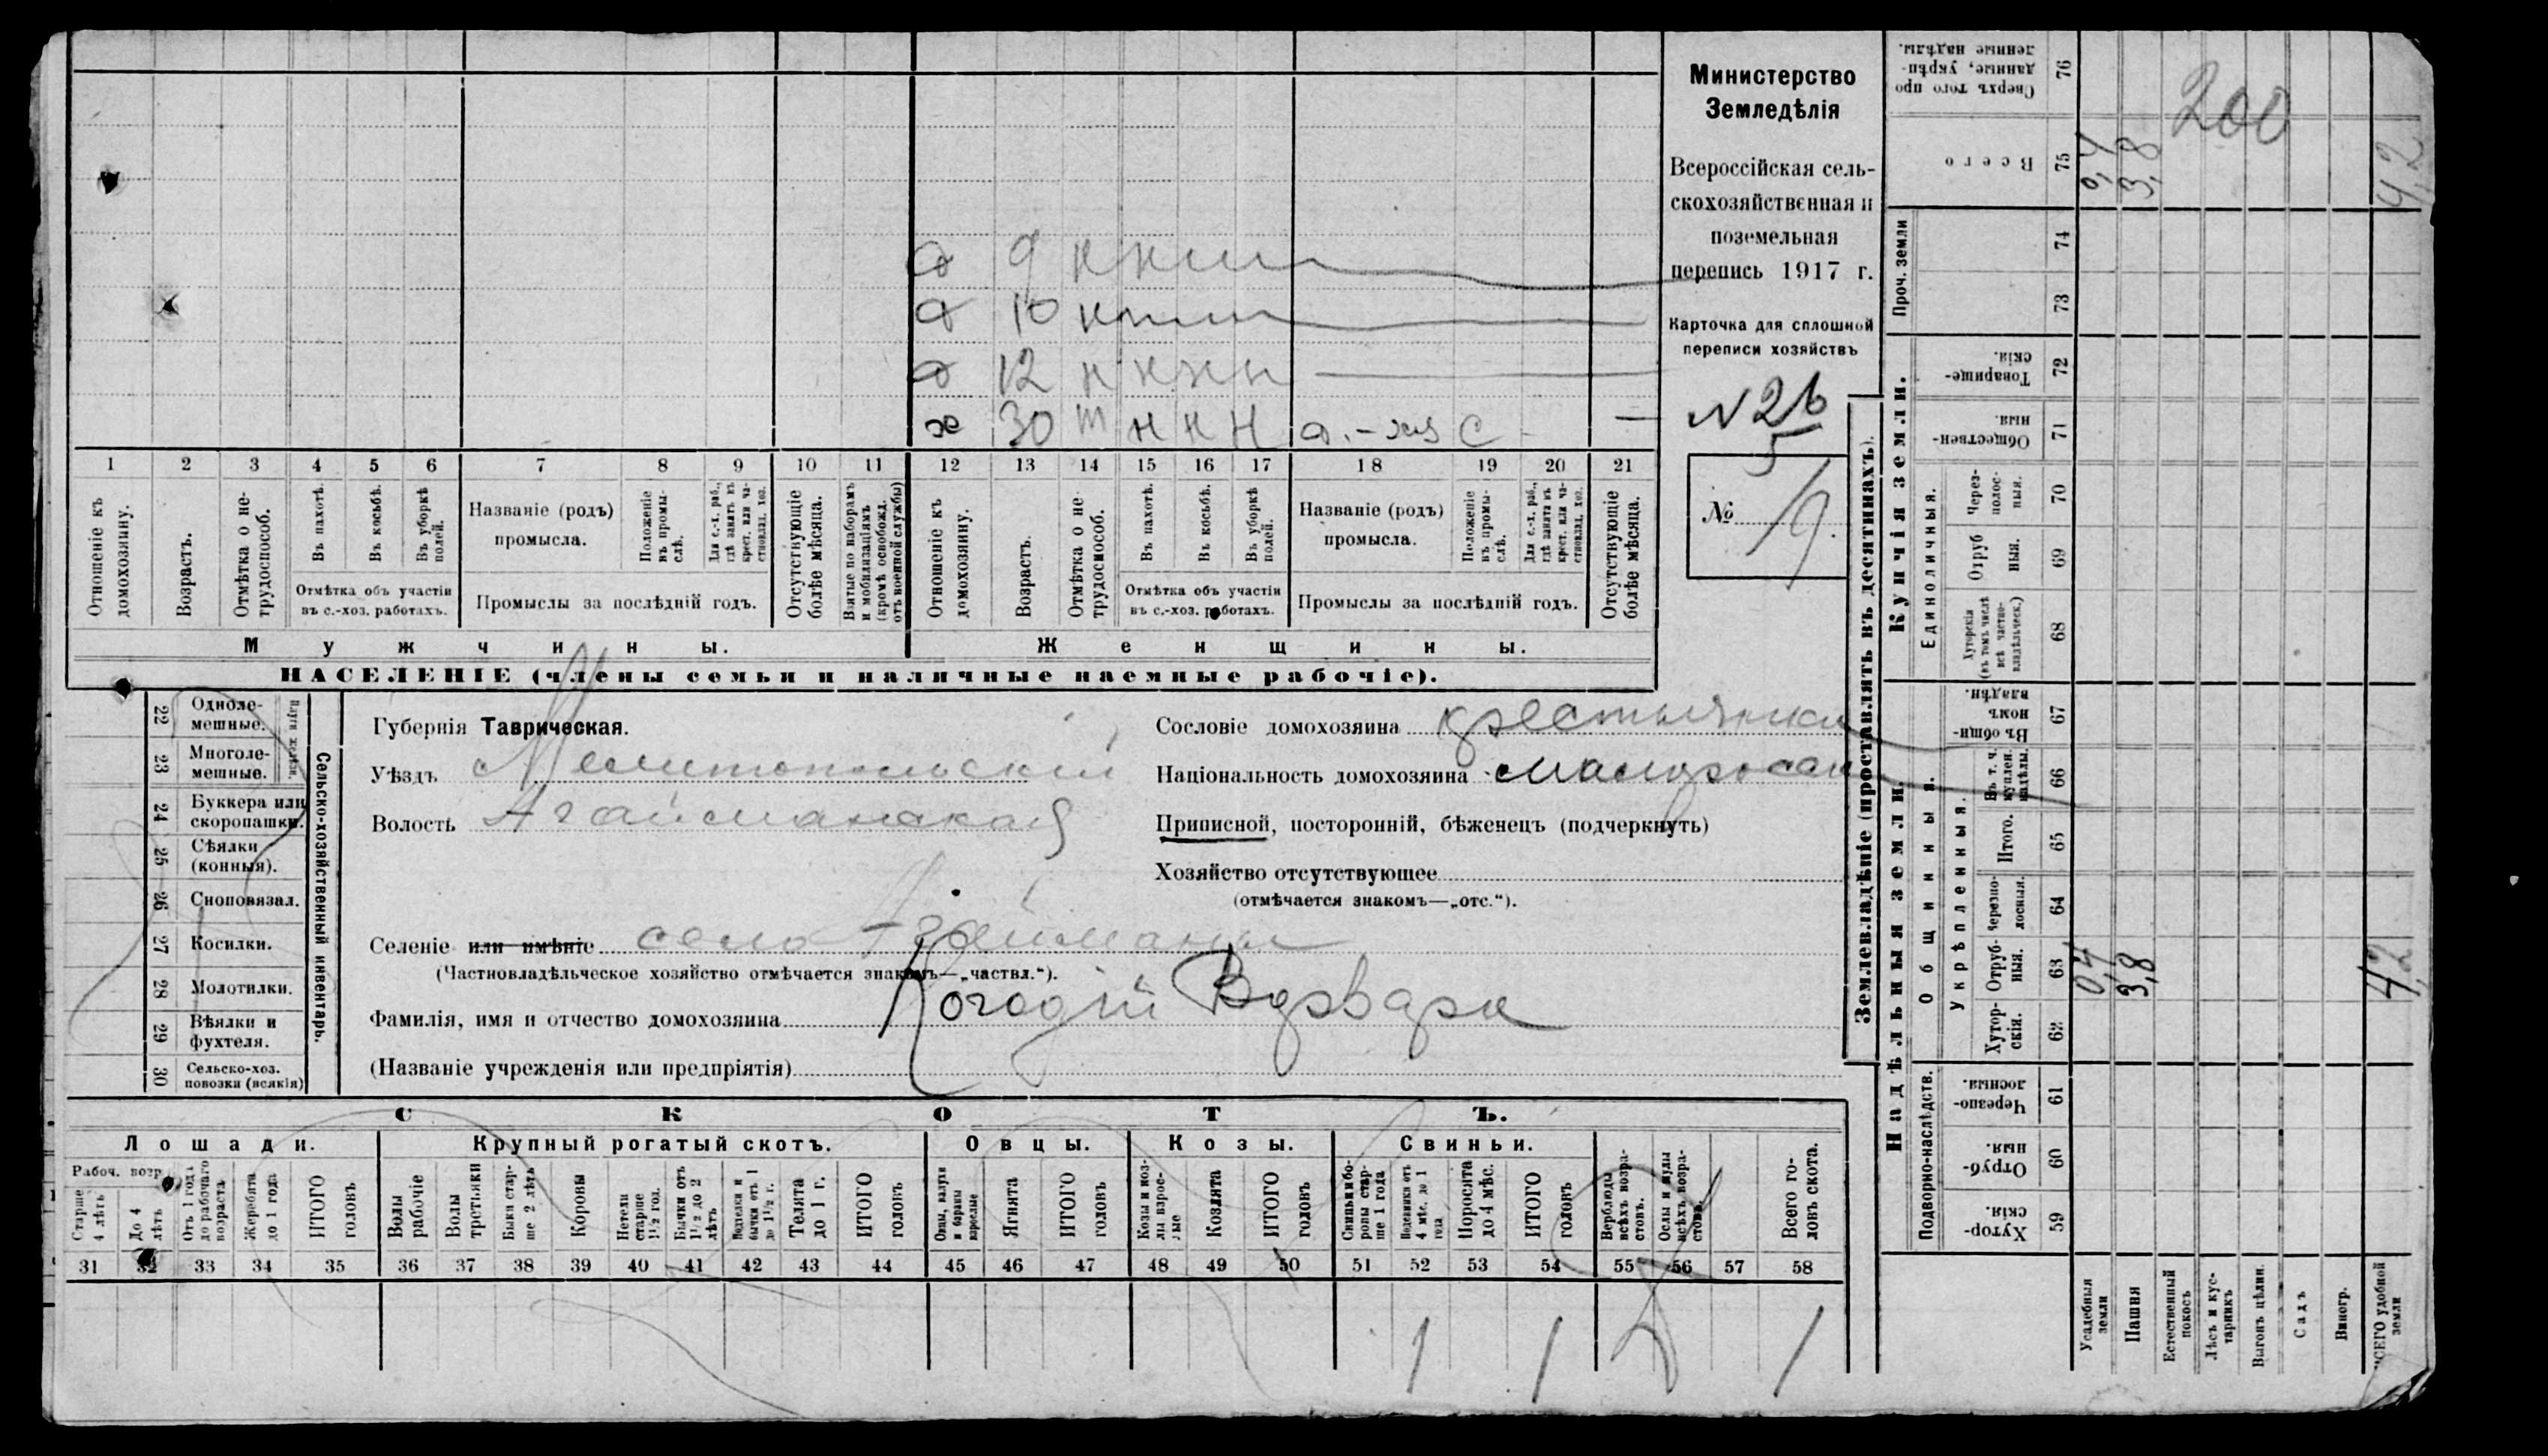 Министерство
Земледѣлія
Всероссійская сель-
скохозяйственная и
поземельная
перепись 1917 г.
Карточка для сплошной
переписи хозяйствъ
N 26
5
№ 19.
д 9 н н н н
д 10 н н н н
д 12 н н н н
х 30 т н н н С - —
1 2 3 4 5 6 7 8 9 10 11 12 13 14 15 16 17 18 19 20 21
Отношеніе къ домохозяину.
Возрастъ.
Отмѣтка о не-трудоспособ.
Въ пахотѣ.
Въ косьбѣ.
Въ уборкѣ полей.
Отмѣтка объ участіи
въ с.-хоз. работахъ.
Названіе (родъ)
промысла.
Положеніе въ промы-слѣ.
Для с.-х. раб., гдѣ занятъ въ крест. или ча-стновлад. хоз.
Промыслы за послѣдній годъ.
Отсутствующіе болѣе мѣсяца.
Взятые по наборамъ и мобилизаціямъ (кромѣ освобожд. отъ военной службы)
Отношеніе къ домохозяину.
Возрастъ.
Отмѣтка о не-трудоспособ.
Въ пахотѣ.
Въ косьбѣ.
Въ уборкѣ полей.
Отмѣтка объ участіи
въ с.-хоз. работахъ.
Названіе (родъ)
промысла.
Положеніе въ промы-слѣ.
Для с.-х. раб., гдѣ занята въ крест. или ча-стновлад. хоз.
Промыслы за послѣдній годъ.
Отсутствующіе болѣе мѣсяца.
Мужчины.
Женщины.
НАСЕЛЕНІЕ (члены семьи и наличные наемные рабочіе).
Сельско-хозяйственный инвентарь.
22 Одноле-мешные.
23 Многоле-мешные.
24 Буккера или скоропашки.
25 Сѣялки (конныя).
26 Сноповязал.
27 Косилки.
28 Молотилки.
29 Вѣялки и фухтеля.
30 Сельско-хоз. повозки (всякія)
Губернія Таврическая.
Уѣздъ Мелитопольскій
Волость Агайманская
Селеніе или имѣніе село Агайманы
(Частновладѣльческое хозяйство отмѣчается знакомъ—„частвл.“).
Фамилія, имя и отчество домохозяина Варвара
(Названіе учрежденія или предпріятія)
Сословіе домохозяина крестьянка
Національность домохозяина малоросс
Приписной, посторонній, бѣженецъ (подчеркнуть)
Хозяйство отсутствующее
(отмѣчается знакомъ—„отс.“).
СКОТЪ.
Лошади.
Крупный рогатый скотъ.
Овцы.
Козы.
Свиньи.
Рабоч. возр.
Старше 4 лѣтъ
До 4 лѣтъ
Отъ 1 года до рабочаго возраста
Жеребята до 1 года
ИТОГО головъ
Волы рабочіе
Волы третьяки
Быки стар-ше 2 лѣтъ
Коровы
Нетели старше 1½ год.
Бычки отъ 1½ до 2 лѣтъ
Подтелки и бычки отъ 1 до 1½ г.
Телята до 1 г.
ИТОГО головъ
Овцы, валухи и бараны взрослые
Ягнята
ИТОГО головъ
Козы и коз-лы взрос-лые
Козлята
ИТОГО головъ
Свиньи и бо-ровы стар-ше 1 года
Подсвинки отъ 4 мѣс. до 1 года
Поросята до 4 мѣс.
ИТОГО головъ
Верблюды всѣхъ возра-стовъ.
Ослы и мулы всѣхъ возра-стовъ.
Всего го-ловъ скота.
31 32 33 34 35 36 37 38 39 40 41 42 43 44 45 46 47 48 49 50 51 52 53 54 55 56 57 58
1 1 1
Землевладѣніе (проставлять въ десятинахъ).
Надѣльныя земли.
Купчія земли.
Проч. земли
Подворно-наслѣдств.
Общинныя.
Укрѣпленныя.
Единоличныя.
Сверхъ того про данные, укрѣп-ленные надѣлы. 76 200
Всего 75 0,4 3,8 4,2
74
73
Товарище-скія. 72
Обществен-ныя. 71
Через-полос-ныя. 70
Отруб ныя. 69
Хуторскія (въ томъ числѣ всѣ частно-владѣльческ.) 68
Въ общи-номъ владѣн. 67
Въ т. ч. куплен. надѣлы. 66
Итого. 65
Черезпо-лосныя. 64
Отруб-ныя. 63 0,4 3,8 4,2
Хутор-скія. 62
Черезпо-лосныя. 61
Отруб-ныя. 60
Хутор-скія. 59
Усадебныя земли
Пашня
Естественный покосъ
Лѣсъ и кус-тарникъ
Выгонъ цѣлин.
Садъ
Виногр.
ВСЕГО удобной земли